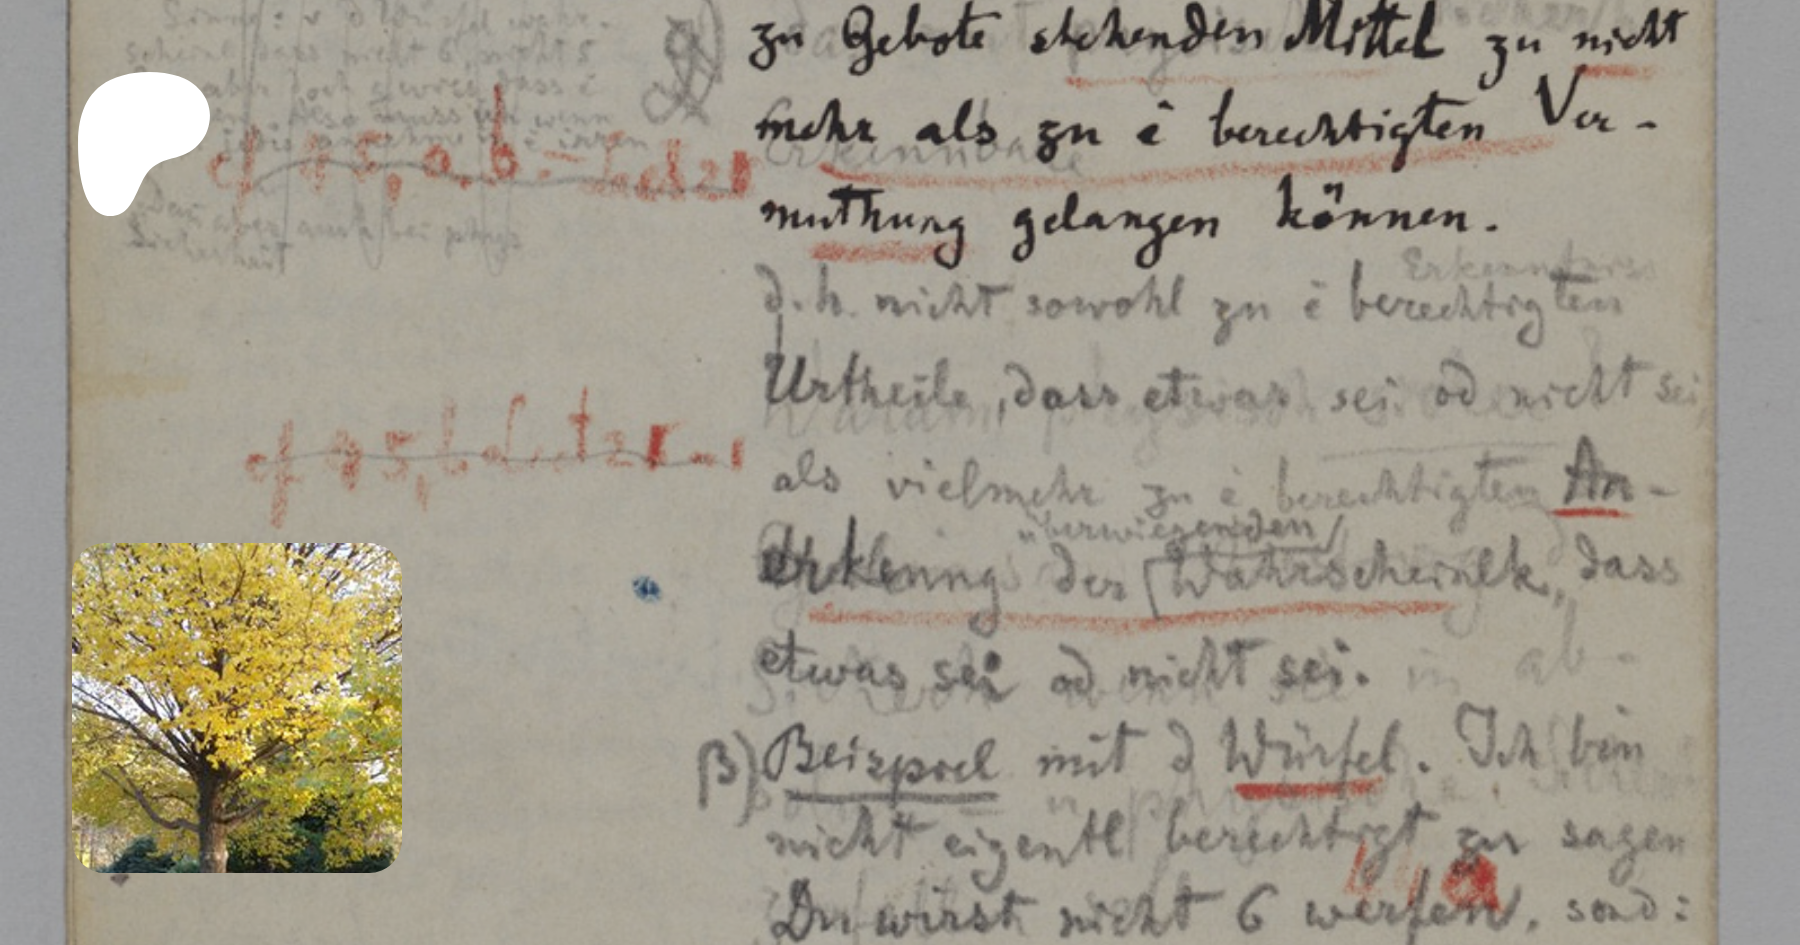 Sinne: v d Würfel wahr-
scheinl dass nicht 6, nicht 5
aber doch gewiss dass è
Also muss ich wenn
jedes annehme è irren
cf q 5, a, b
Das aber auch bei phys
Sicherheit
zu Gebote stehenden Mittel zu nicht
mehr als zu ê berechtigten Ver-
muthung gelangen können.
Erkenntnis
d. h. nicht sowohl zu ê berechtigten
Urtheile, dass etwas sei od nicht sei
cf q 5, b
als vielmehr zu ê berechtigten An-
überwiegenden
erkenng der Wahrscheinlk, dass
etwas sei od nicht sei.
β) Beispiel mit d Würfel. Ich bin
nicht eigentl berechtigt zu sagen
Du wirst nicht 6 werfen, sond: